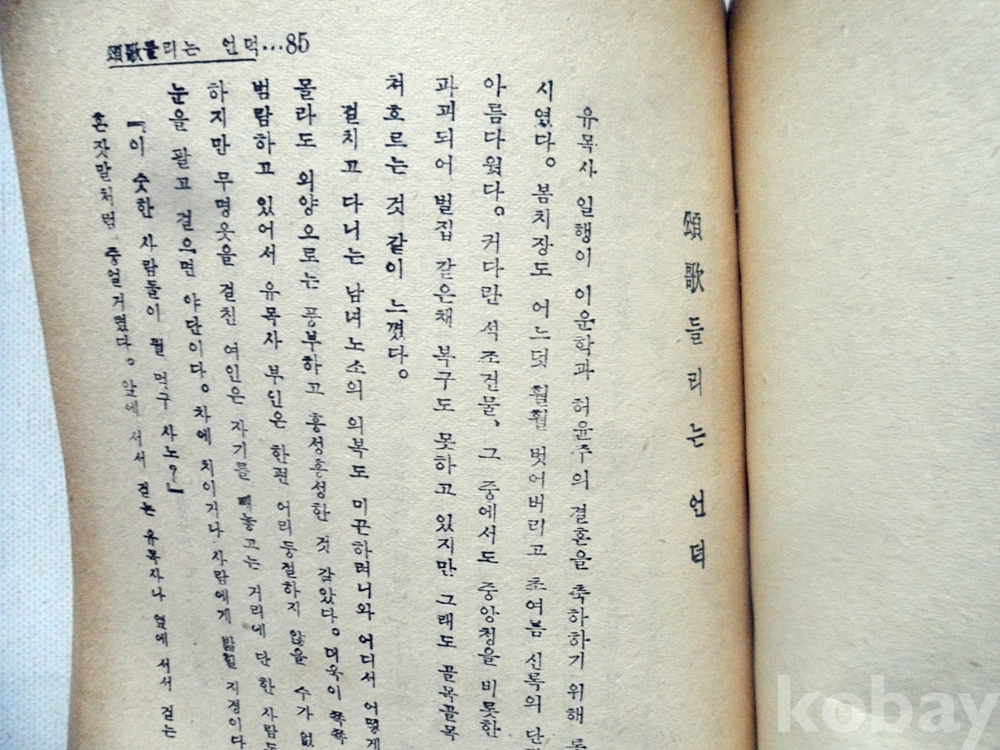 頌歌들리는 언덕…85
頌歌들리는 언덕
유목사 일행이 이운학과 허윤주의 결혼을 축하하기 위해
시였다。봄치장도 어느덧 훨훨 벗어버리고 초여름 신록의 단
아름다웠다。커다란 석조건물、그 중에서도 중앙청을 비롯한
파괴되어 벌집 같은채 복구도 못하고 있지만 그래도 골목골목
쳐흐르는 것 같이 느꼈다。
걸치고 다니는 남녀노소의 의복도 미끈하려니와 어디서 어떻게
몰라도 외양으로는 풍부하고 흥성흥성한 것 같았다。더욱이 쭉쭉
범람하고 있어서 유목사 부인은 한편 어리둥절하지 않을 수가 없
하지만 무명옷을 걸친 여인은 자기를 빼놓고는 거리에 단 한 사람도
눈을 팔고 걸으면 야단이다。차에 치이거나 사람에게 밟힐 지경이다
「이 숫한 사람들이 뭘 먹구 사노?」
혼잣말처럼 중얼거렸다。앞에 서서 걷는 유목사나 옆에 서서 걷는
kobay